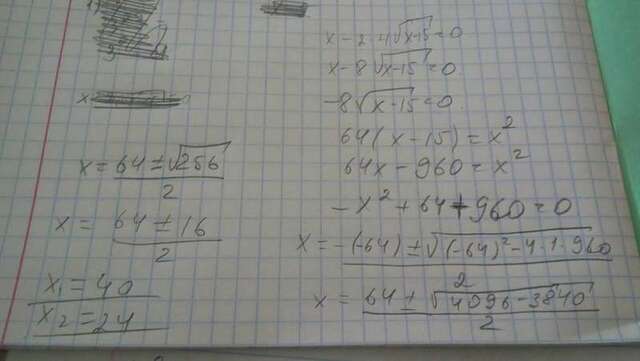 x - 2 · 4√(x-15) = 0
x - 8√(x-15) = 0
-8√(x-15) = 0
64(x - 15) = x²
64x - 960 = x²
-x² + 64 + 960 = 0
x = (-(-64) ± √((-64)² - 4·1·960))/2
x = (64 ± √(4096 - 3840))/2
x = (64 ± √256)/2
x = (64 ± 16)/2
x₁ = 40
x₂ = 24